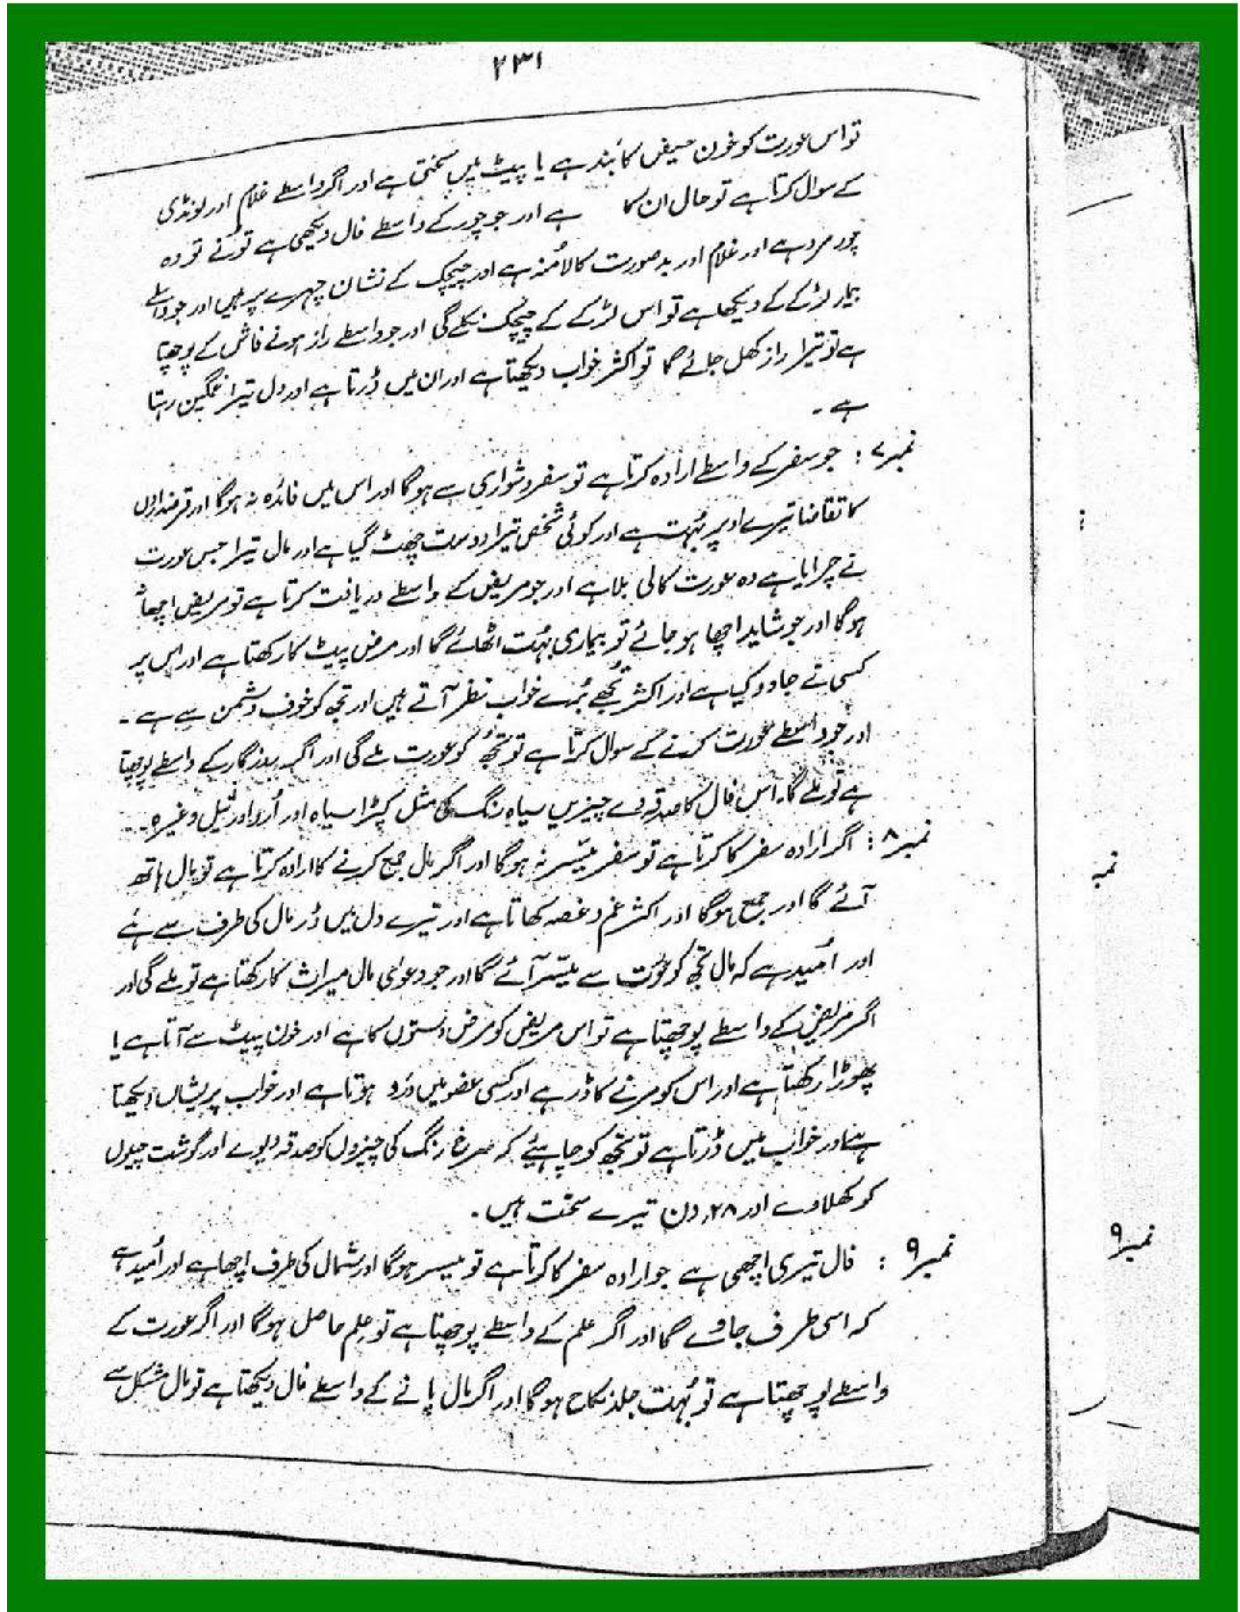 ۲۳۱
تو اس عورت کو خون حیض کا بند ہے یا پیٹ میں سختی ہے اور اگر واسطے غلام اور لونڈی
کے سوال کرتا ہے تو حال ان کا ہے اور جو چور کے واسطے فال دیکھی ہے تو نے تو وہ
چور مرد ہے اور غلام اور بدصورت کالا منہ ہے اور چیچک کے نشان چہرے پر ہیں اور جو واسطے
بیمار لڑکے کے دیکھا ہے تو اس لڑکے کے چیچک نکلے گی اور جو واسطے راز ہونے فاش کے پوچھتا
ہے تو تیرا راز کھل جائے گا تو اکثر خواب دیکھتا ہے اور ان میں ڈرتا ہے اور دل تیرا غمگین رہتا
ہے ۔
نمبر ۷ : جو سفر کے واسطے ارادہ کرتا ہے تو سفر دشواری سے ہوگا اور اس میں فائدہ نہ ہوگا اور قرضداروں
کا تقاضا تیرے اوپر بہت ہے اور کوئی شخص تیرا دوست چھٹ گیا ہے اور مال تیرا جس عورت
نے چرایا ہے وہ عورت کالی بلا ہے اور جو مریض کے واسطے دریافت کرتا ہے تو مریض اچھا نہ
ہوگا اور جو شاید اچھا ہو جائے تو بیماری بہت اٹھائے گا اور مرض پیٹ کا رکھتا ہے اور اس پر
کسی نے جادو کیا ہے اور اکثر تجھے بُرے خواب نظر آتے ہیں اور تجھ کو خوف دشمن سے ہے ۔
اور جو واسطے عورت کرنے کے سوال کرتا ہے تو تجھ کو عورت ملے گی اور اگر روزگار کے واسطے پوچھتا
ہے تو ملے گا۔ اس فال کا صدقہ دے چیزیں سیاہ رنگ کی مثل کپڑا سیاہ اور اُرد اور تیل وغیرہ ۔
نمبر ۸ : اگر ارادہ سفر کا کرتا ہے تو سفر میسّر نہ ہوگا اور اگر مال جمع کرنے کا ارادہ کرتا ہے تو مال ہاتھ
آئے گا اور جمع ہوگا اور اکثر غم و غصہ کھاتا ہے اور تیرے دل میں ڈر مال کی طرف سے ہے
اور اُمید ہے کہ مال تجھ کو سے میسّر آئے گا اور جو دعویٰ مال میراث کا رکھتا ہے تو ملے گی اور
اگر مریض کے واسطے پوچھتا ہے تو اس مریض کو مرض دستوں کا ہے اور خون پیٹ سے آتا ہے یا
پھوڑا رکھتا ہے اور اس کو مرنے کا ڈر ہے اور کسی عضو میں درد ہوتا ہے اور خواب پریشاں دیکھتا
ہے اور خواب میں ڈرتا ہے تو تجھ کو چاہیئے کہ سرخ رنگ کی چیزوں کو صدقہ دیوے اور گوشت چیلوں
کو کھلاوے اور ۲۸، دن تیرے سخت ہیں ۔
نمبر ۹ : فال تیری اچھی ہے جو ارادہ سفر کا کرتا ہے تو میسر ہوگا اور شمال کی طرف اچھا ہے اور اُمید ہے
کہ اسی طرف جاوے گا اور اگر علم کے واسطے پوچھتا ہے تو علم حاصل ہوگا اور اگر عورت کے
واسطے پوچھتا ہے تو بُہت جلد نکاح ہوگا اور اگر مال پانے کے واسطے فال دیکھتا ہے تو مال مشکل سے
نمبر
نمبر ۹